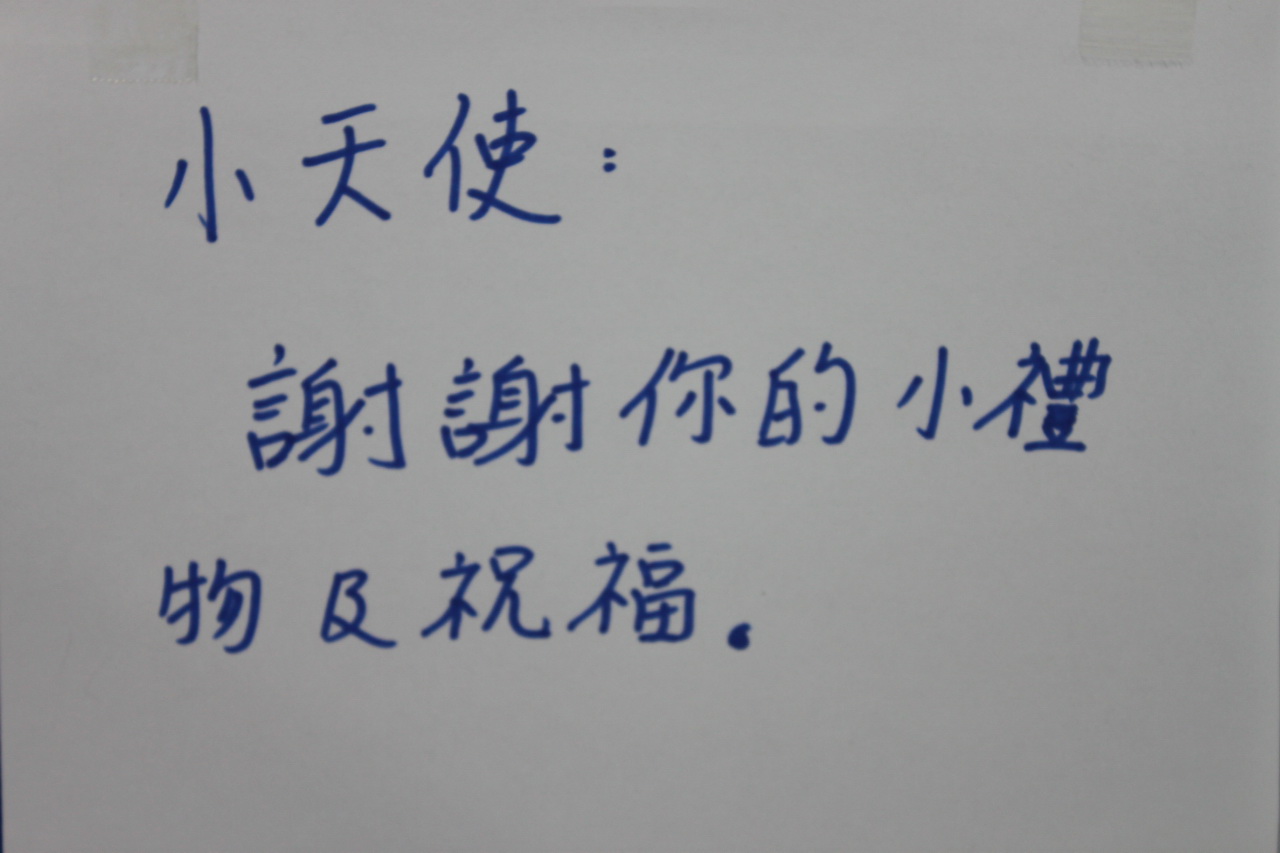 小天使：
謝謝你的小禮
物及祝福.